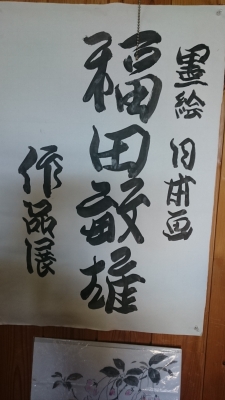 墨絵 日本画
福田敏雄
作品展